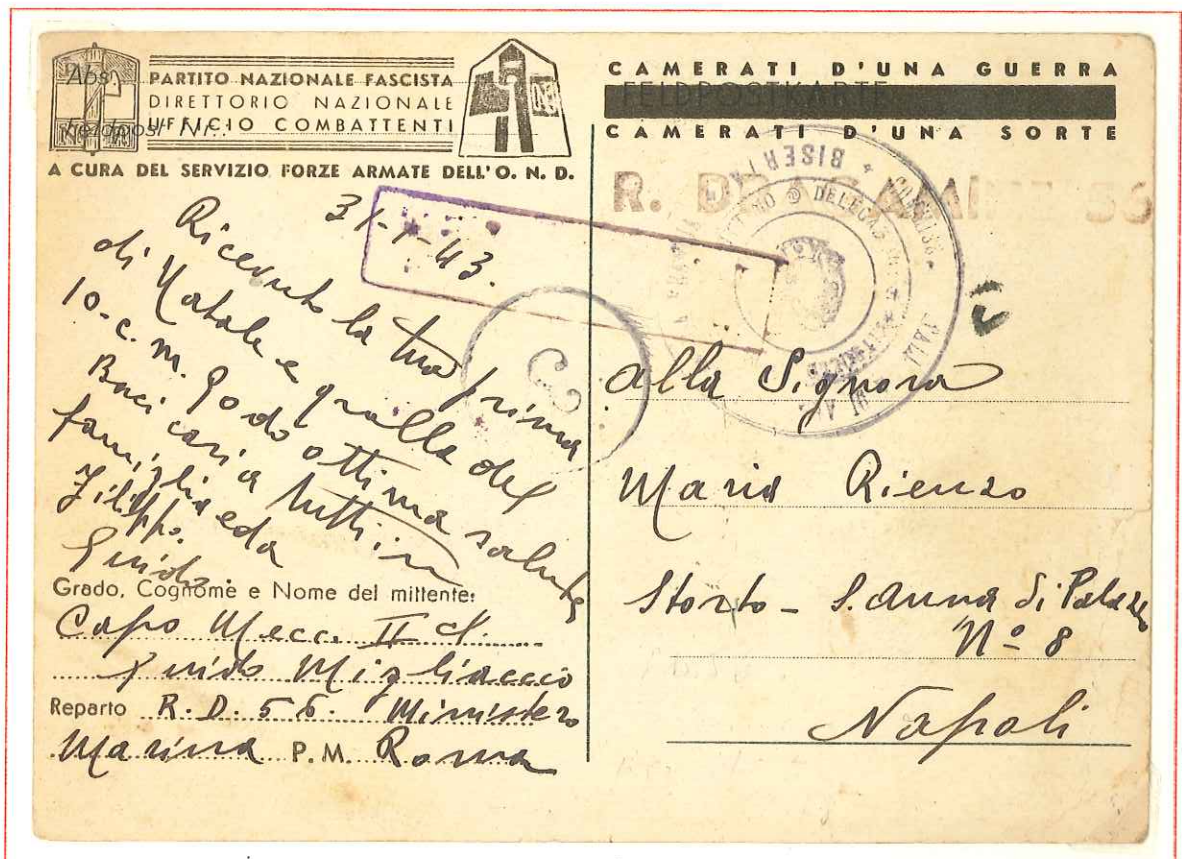 Abs.:
Feldpost Nr.:
PARTITO NAZIONALE FASCISTA
DIRETTORIO NAZIONALE
UFFICIO COMBATTENTI
A CURA DEL SERVIZIO FORZE ARMATE DELL'O. N. D.
CAMERATI D'UNA GUERRA
FELDPOSTKARTE
CAMERATI D'UNA SORTE
R. DRAGAMINE 56
BISERTA
31-1-43.
Ricevuto la tua prima
di Natale e quella del
10. c. m. Godo ottima salute
Baci cari a tutti in
famiglia ed a
Filippo.
Guido.
Grado, Cognome e Nome del mittente:
Capo Mecc. II cl.
Guido Migliaccio
Reparto R.D. 56. Ministero
Marina P.M. Roma
alla Signora
Maria Rienzo
Storto - S. Anna di Palazzo
Nº 8
Napoli